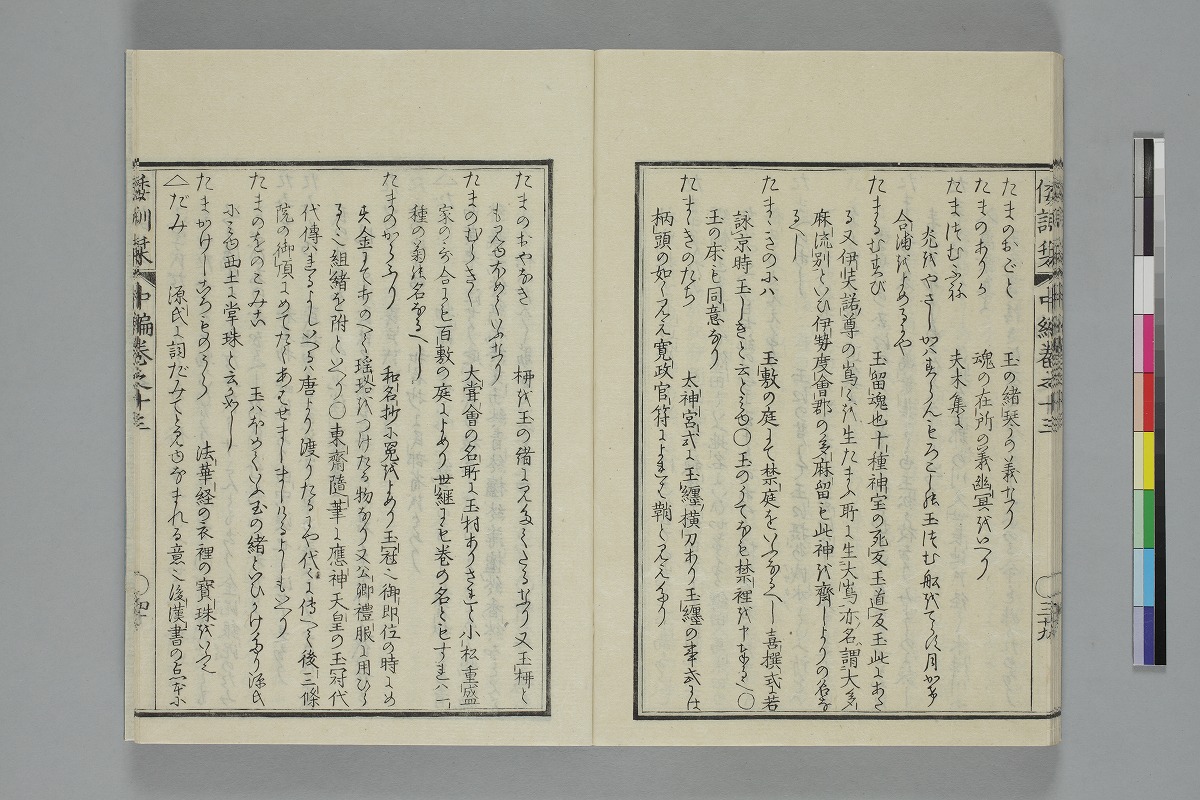 倭訓栞 中編巻之十三
たまのおごと 玉の緒琴の義なり
たまのありか 魂の在所の義幽冥をいへり
たまはむふね 夫木集に
光をやさしかはすらんもろこしの玉はむ舩にてらす月かげ
合浦をよめるにや
たまるむすび 玉留魂也十種神宝の死反玉道反玉此にあた
る又伊弉諾尊の嶌を生たまふ所に生大嶌亦名謂大多
麻流別といひ伊勢度會郡の多麻留も此神を齋しよりの名な
るべし
たましきのには 玉敷の庭にて禁庭をいふなるべし喜撰式に若
詠京時玉しきと云と見ゆ〇玉のうてなも禁裡を申奉る也〇
玉の床も同意なり
たままきのたち 太神宮式に玉纒横刀あり玉纒の事式には
柄頭の如く見え寛政官符によれば鞘と見えたり
三十九
たまのおやなぎ 柳を玉の緒に見なしたるなり又玉柳と
も見ゆほめていふなり
たまのむらきく 大嘗會の名所に玉村ありされど小松重盛
家の哥合によめるも百敷の庭によめり世継にも巻の名ともすれば一
種の菊の名なるべし
たまのかうふり 和名抄に冕をよめり玉冠也御即位の時にめ
す金にて作りて瑶珞をつけたる物なり又公卿禮服に用ひら
るゝ組緒を附といへり〇東齋随筆に應神天皇の玉冠代
代傳はれるよしいへるは唐より渡りたるにや代々に傳へて後三條
院の御頂にめてたくあはせましましけるよしもいへり
たまのをのこみち 玉はほめていふ玉の緒といひかけたり源氏
に見ゆ西土に掌珠と云がことし
たまかけしころものうら 法華経の衣裡の寶珠をいへり
△だみ 源氏に詞だみてと見ゆなまれる意也後漢書の点に
倭訓栞 中編巻之十三
四十